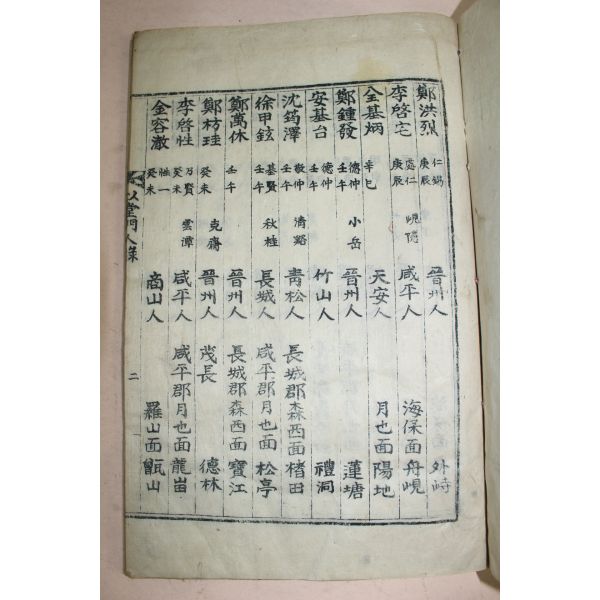 鄭洪烈 仁錫 庚辰 晉州人 外峙
李啓宅 處仁 庚辰 峴隱 咸平人 海保面舟峴
全基炳 辛巳 天安人 月也面陽地
鄭鍾發 德仲 壬午 小岳 晉州人 蓮塘
安基台 德仲 壬午 竹山人 禮洞
沈筠澤 敬仲 壬午 淸谿 靑松人 長城郡森西面楮田
徐甲鉉 基賢 壬午 秋桂 長城人 咸平郡月也面松亭
鄭萬休 壬午 晉州人 長城郡森西面寶江
鄭枋珪 癸未 克齋 晉州人 茂長 德林
李啓性 乃賢 癸未 雲潭 咸平人 咸平郡月也面龍岩
金容澈 性一 癸未 商山人 羅山面甑山
堂門人錄 二